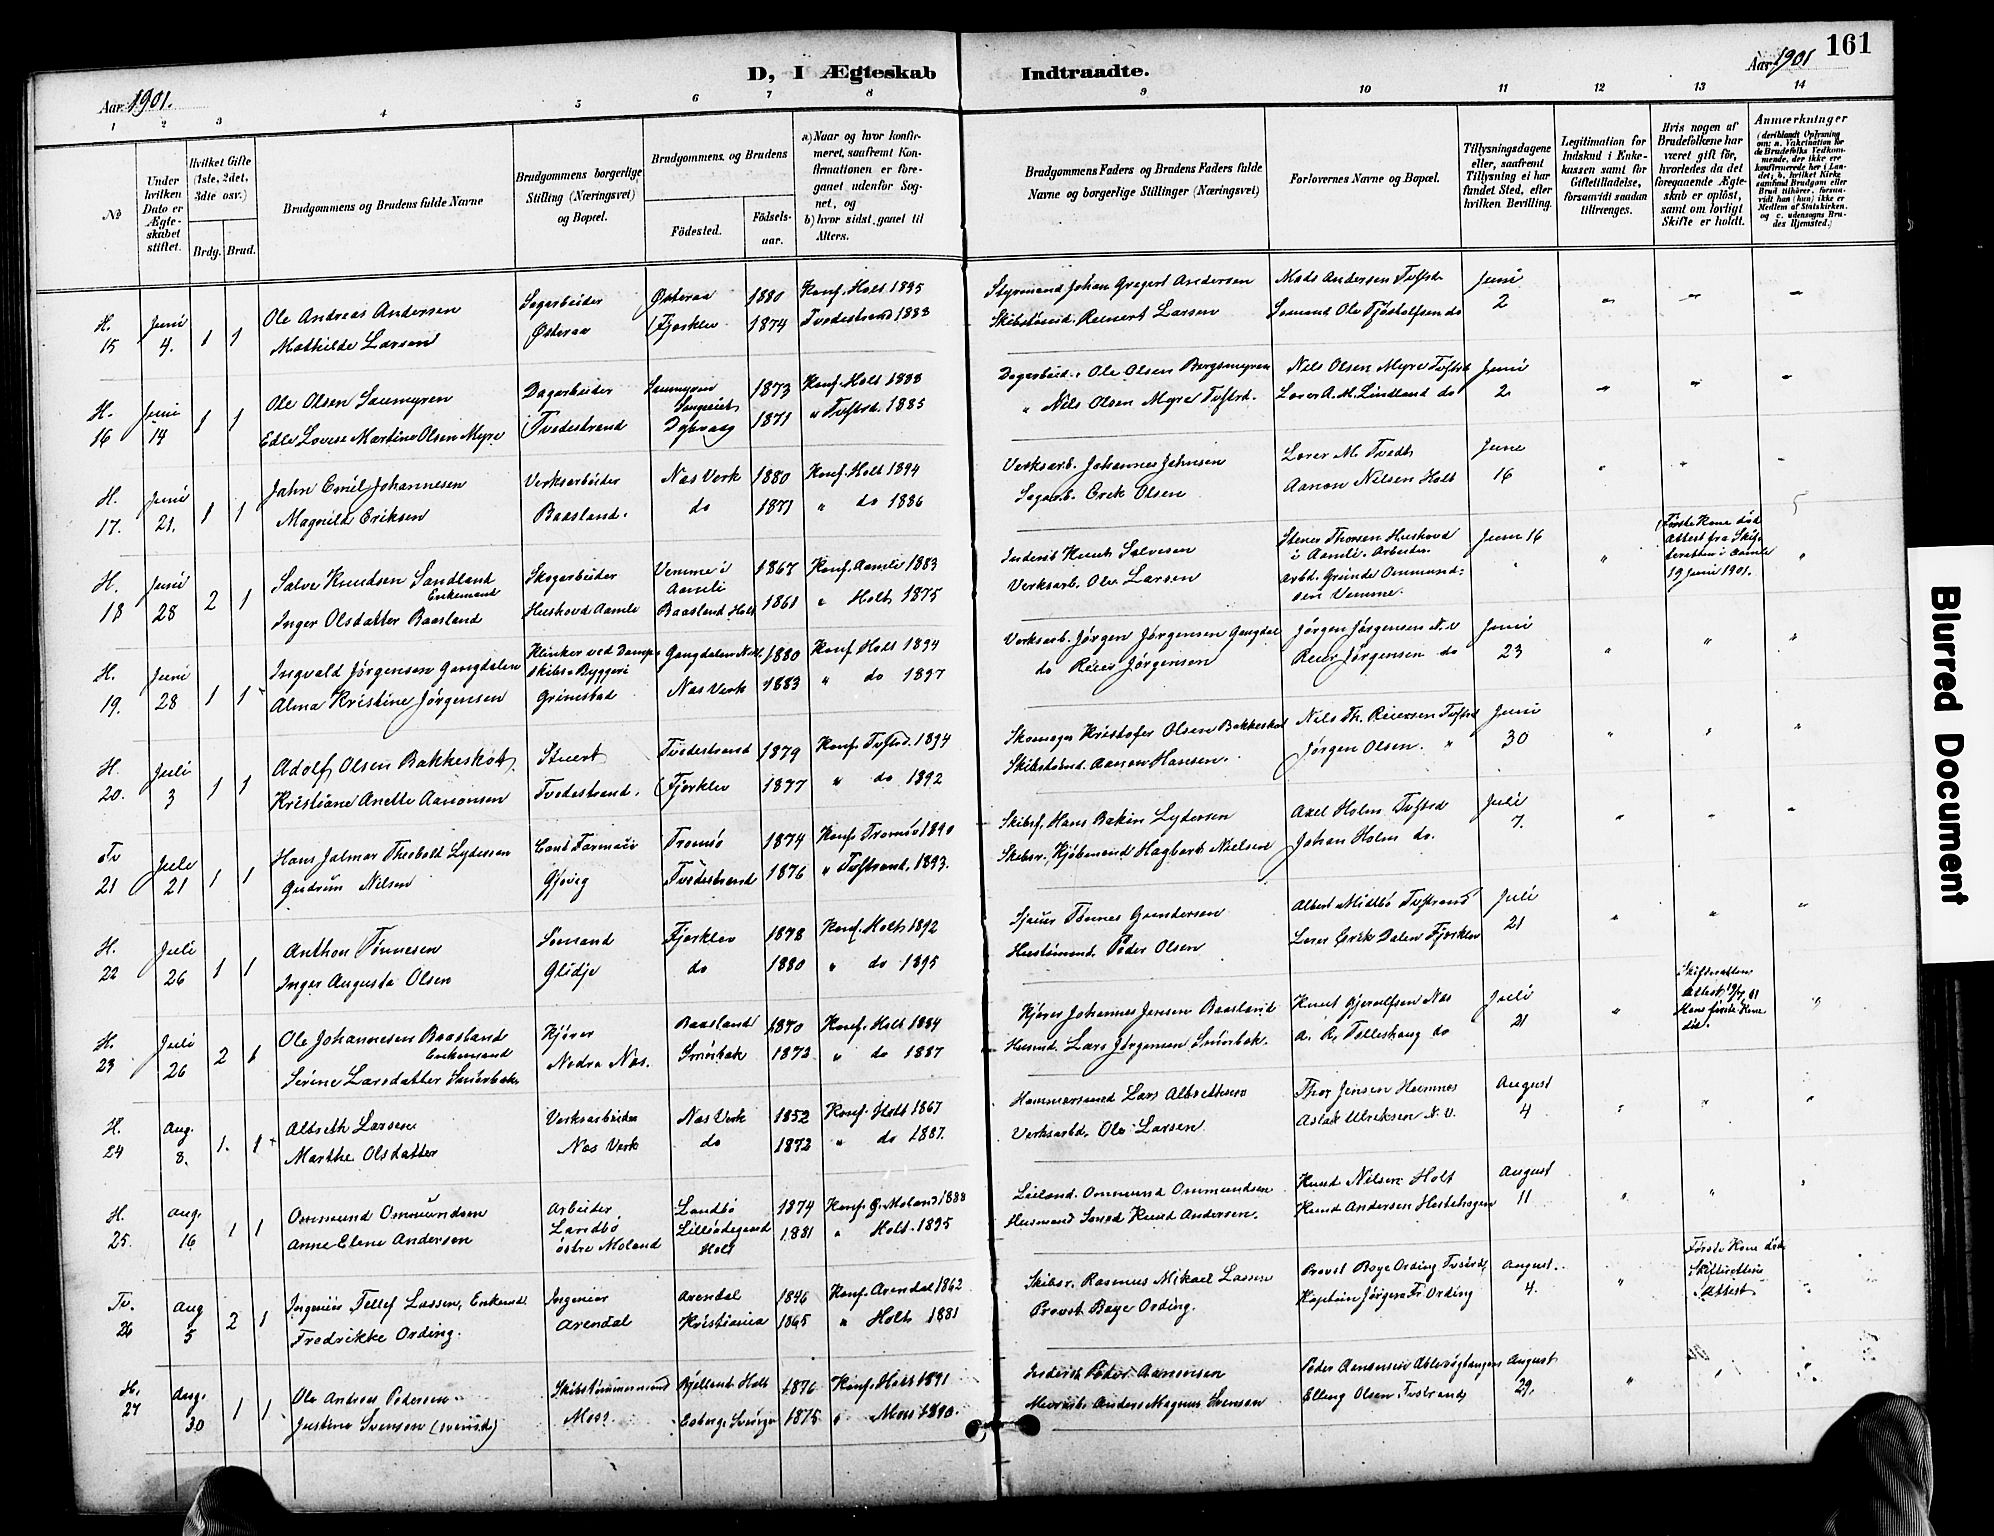 161
D, I Ægteskab Indtraadte.
Aar 1901.
Aar 1901
1 2 3 4 5 6 7 8 9 10 11 12 13 14
No
Under hvilken Dato er Ægteskabet stiftet.
Hvilket Gifte (1ste, 2det, 3die osv.)
Brdg. Brud.
Brudgommens og Brudens fulde Navne
Brudgommens borgerlige Stilling (Næringsvei) og Bopæl.
Brudgommens og Brudens
Födested.
Födselsaar.
a) Naar og hvor konfirmeret, saafremt Konfirmationen er foregaaet udenfor Sognet, og
b) hvor sidst gaaet til Alters.
Brudgommens Faders og Brudens Faders fulde Navne og borgerlige Stillinger (Næringsvei)
Forlovernes Navne og Bopæl.
Tillysningsdagene eller, saafremt Tillysning ei har fundet Sted, efter hvilken Bevilling.
Legitimation for Indskud i Enkekassen samt for Giftetilladelse, forsaavidt saadan tiltrænges.
Hvis nogen af Brudefolkene har været gift før, hvorledes da det foregaaende Ægteskab er opløst, samt om lovligt Skifte er holdt.
Anmærkninger
H. 15 Juni 4. 1 1
Ole Andreas Andersen Sagarbeider Østeraa 1880 Konf. Holt 1895
Mathilde Larsen Østeraa Fjorklev 1874 Tvedestrand 1883
Styrmand Johan Gregert Andersen Mads Andersen Tvstrd Juni
Skibstømd. Reinert Larsen Sømand Ole Tjøstolfsen do 2
H. 16 Juni 14 1 1
Ole Olsen Saumyren Dagarbeider Saumyren 1873 Konf. Holt 1888
Edle Lovise Martine Olsen Myre Tvedestrand Dybvaag 1871 " Tvstrd. 1885
Dagarbeid. Ole Olsen Bergsmyren Nils Olsen Myre Tvstrd Juni
" Nils Olsen Myre Tvstrd. Lærer A. M. Lindland do 2
H. 17. Juni 21. 1 1
Jahn Emil Johannesen Verksarbeider Næs Verk 1880 Konf. Holt 1894
Magnild Eriksen Baasland. do 1871 " do 1886
Verksarb. Johannes Jahnsen Lærer M. Tvedt Juni
Sagarb. Erik Olsen Aanon Nilsen Holt 16
H. 18 Juni 28 2 1
Salve Knudsen Sandland Enkemand Skogarbeider Vemme i Aamli 1867 Konf. Aamli 1883
Inger Olsdatter Baasland Huskovd Aamli Baasland Holt 1861 " Holt 1875
Inderst Knut Salvesen Stener Thorsen Huskovd i Aamli. Arbeider Juni 16
Verksarb. Ole Larsen arbd. Grunde Ommundsen Vemme.
Første Kone død Attest fra Skifteretten i Aamli 19 Juni 1901.
H. 19. Juni 28 1 1
Ingvald Jörgensen Gangdalen Klinker ved Dampskibs Byggeri Gangdalen Holt 1880 Konf Holt 1894
Alma Kristine Jörgensen Grimstad Næs Verk 1883 " do 1897
Verksarb. Jörgen Jørgensen Gangdal Jörgen Jørgensen N. V Juni
do Reier Jørgensen Reier Jørgensen do 23
H. 20. Juli 3 1 1
Adolf Olsen Bakkeskot Stuert Tvedestrand 1879 Konf. Tvstrd. 1894
Kristiane Anette Aanonsen Tvedestrand. Fjorklev 1877 " do 1892
Skomager Kristofer Olsen Bakkeskot Nils Th. Reiersen Tvstrd Juni
Skibstømd. Aanon Hansen. Jørgen Olsen. " 30
Tv 21 Juli 21 1 1
Hans Jalmar Theobald Lydersen Cand Farmaci Tromsö 1874 Konf. Tromsö 1890
Gudrun Nilsen Gjøvig Tvedestrand 1876 " Tvstrand. 1893.
Skibsf. Hans Bakin Lydersen Axel Holm Tvstrd Juli
Skibsr., Kjöbmand Hagbart Nielsen Johan Holm do. 7.
H. 22 Juli 26 1 1
Anthon Tönnesen Sömand Fjorklev 1878 Konf. Holt 1892
Inger Augusta Olsen Glidje do 1880 " do 1895
Sjauer Tönnes Gundersen Albert Midtbö Tvstrand Juli
Hustömmd. Peder Olsen Lærer Erik Dalen Fjorklev 21
H. 23 Juli 26 2 1
Ole Johannesen Baasland Enkemand Kjörer Baasland 1870 Konf. Holt 1884
Serine Larsdatter Smörbæk Nedre Næs. Smörbæk 1872 " do 1887
Kjörer Johannes Jensen Baasland Knut Gjerulfsen Næs Juli
Husmd. Lars Jørgensen Smörbæk. A. R. Tellefshaug do 21
Skifteretten Attest 19/7 01 Hans første Kone død.
H. 24 Aug. 8. 1. 1
Albreth Larsen Verksarbeider Næs Verk 1852 Konf. Holt 1867
Marthe Olsdatter Næs Verk do 1872 " do 1887.
Hammersmed Lars Albrethsen Thor Jensen Hammes August
Verksarbd. Ole Larsen Aslak Ulriksen N. V. 4
H. 25. Aug. 16 1 1
Ommund Ommundsen Arbeider Landbö 1874 Konf. Ø. Moland 1888
Anne Elene Andersen Landbö østre Moland Lillesødegaard Holt 1881 " Holt. 1895
Leiland. Ommund Ommundsen Knud Nilsen Holt August
Husmand Smed Knud Andersen. Knud Andersen Hestehagen 11
Tv. 26 Aug 5 2 1
Ingeniör Tellef Lassen, Enkemd. Ingeniör Arendal 1846 Konf. Arendal 1862
Fredrikke Ording. Arendal Kristiania 1865 " Holt 1881
Skibsr. Rasmus Mikael Lassen Provst Boye Ording Tvstrd August.
Provst Boye Ording. Kaptein Jörgen Fr Ording 4.
Første Kone død. Skifteretten Attest
H. 27 Aug. 30 1 1
Ole Andreas Pedersen. Skibstömmermand Gjelland Holt 1876 Konf. Holt 1891
Justine Svenson (svensk) Moss Sverige 1875 " Moss 1890.
Inderst Peder Aanonsen Peder Aanonsen August
Anders Magnus Svenson Elling Olsen Tvstrand 29.
Blurred Document